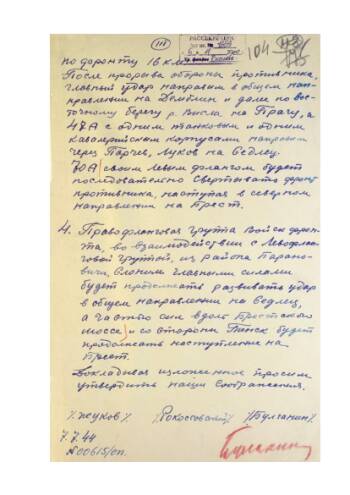 III
РАССЕКРЕЧЕНО
104
по фронту 16 км.
После прорыва обороны противника,
главный удар направим в общем нап-
правлении на Демблин и далее по вос-
точному берегу р. Висла на Прагу, а
47А с одним танковым и одним
кавалерийским корпусами направим
через Парчев, Луков на Седлец.
70А своим левым флангом будет
последовательно свертывать фронт
противника, наступая в северном
направлении на Брест.
4. Правофланговая группа войск фрон-
та, во взаимодействии с левофлан-
говой группой, из района Барано-
вичи, Слоним главными силами
будет продолжать развивать удар
в общем направлении на Седлец,
а частью сил вдоль Брестского
шоссе и со стороны Пинск будет
продолжать наступление на
Брест.
Докладывая изложенное просим
утвердить наши соображения.
/Жуков/ /Рокоссовский/ /Булганин/
7.7.44
№00615/оп.
Булганин